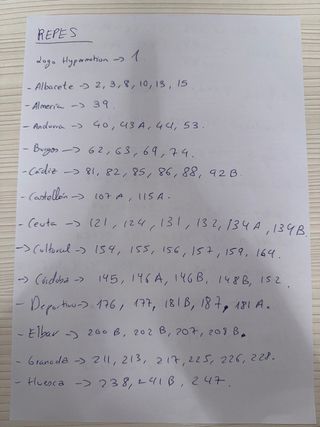 REPES
Logo Hypermotion -> 1
- Albacete -> 2, 3, 8, 10, 13, 15
- Almería -> 39.
- Andorra -> 40, 43A, 44, 53.
- Burgos -> 62, 63, 69, 74.
- Cádiz -> 81, 82, 85, 86, 88, 92B.
- Castellón -> 107A, 115A.
- Ceuta -> 121, 124, 131, 132, 134A, 134B
-> Cultural -> 154, 155, 156, 157, 159, 164.
-> Córdoba -> 145, 146A, 146B, 148B, 152.
- Deportivo -> 176, 177, 181B, 187, 181A.
- Eibar -> 200B, 202B, 207, 208B.
- Granada -> 211, 213, 217, 225, 226, 228.
- Huesca -> 238, 241B, 247.